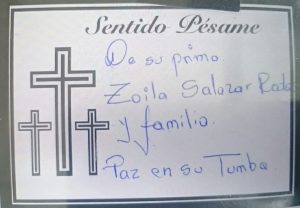 Sentido Pésame
De su prima
Zoila Salazar Rada
y familia.
Paz en su Tumba